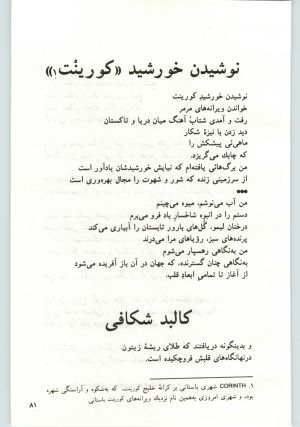 نوشیدن خورشید «کورینْت۱»
نوشیدن خورشیدِ کورینت
خواندن ویرانه‌های مرمر
رفت و آمدی شتاب‌آهنگ میان دریا و تاکستان
دید زدن با نیزهٔ شکار
ماهی‌ئی پیشکش را
که چابك می‌گریزد.
من برگ‌هائی یافته‌ام که نیایش خورشیدشان یادآور است
از سرزمینی زنده که شور و شهوت را مجال بهره‌وری است
•••
من آب می‌نوشم، میوه می‌چینم
دستم را در انبوه شاخسار باد فرو می‌برم
درختان لیمو، گُل‌های بارور تابستان را آبیاری می‌کند
پرنده‌های سبز، رؤیاهای مرا می‌درند
من به‌نگاهی رهسپار می‌شوم
به‌نگاهی چنان گسترده، که جهان در آن باز آفریده می‌شود
از آغاز تا تمامی ابعادِ قلب.
کالبد شکافی
و بدینگونه دریافتند که طلای ریشهٔ زیتون
درنهانگاه‌های قلبش فروچکیده است.
۱. CORINTH شهری باستانی بر کرانهٔ خلیج کورینت، که به‌شکوه و آراستگی شهره
بود، و شهری امروزی به‌همین نام نزدیك ویرانه‌های کورینت باستانی.
۸۱